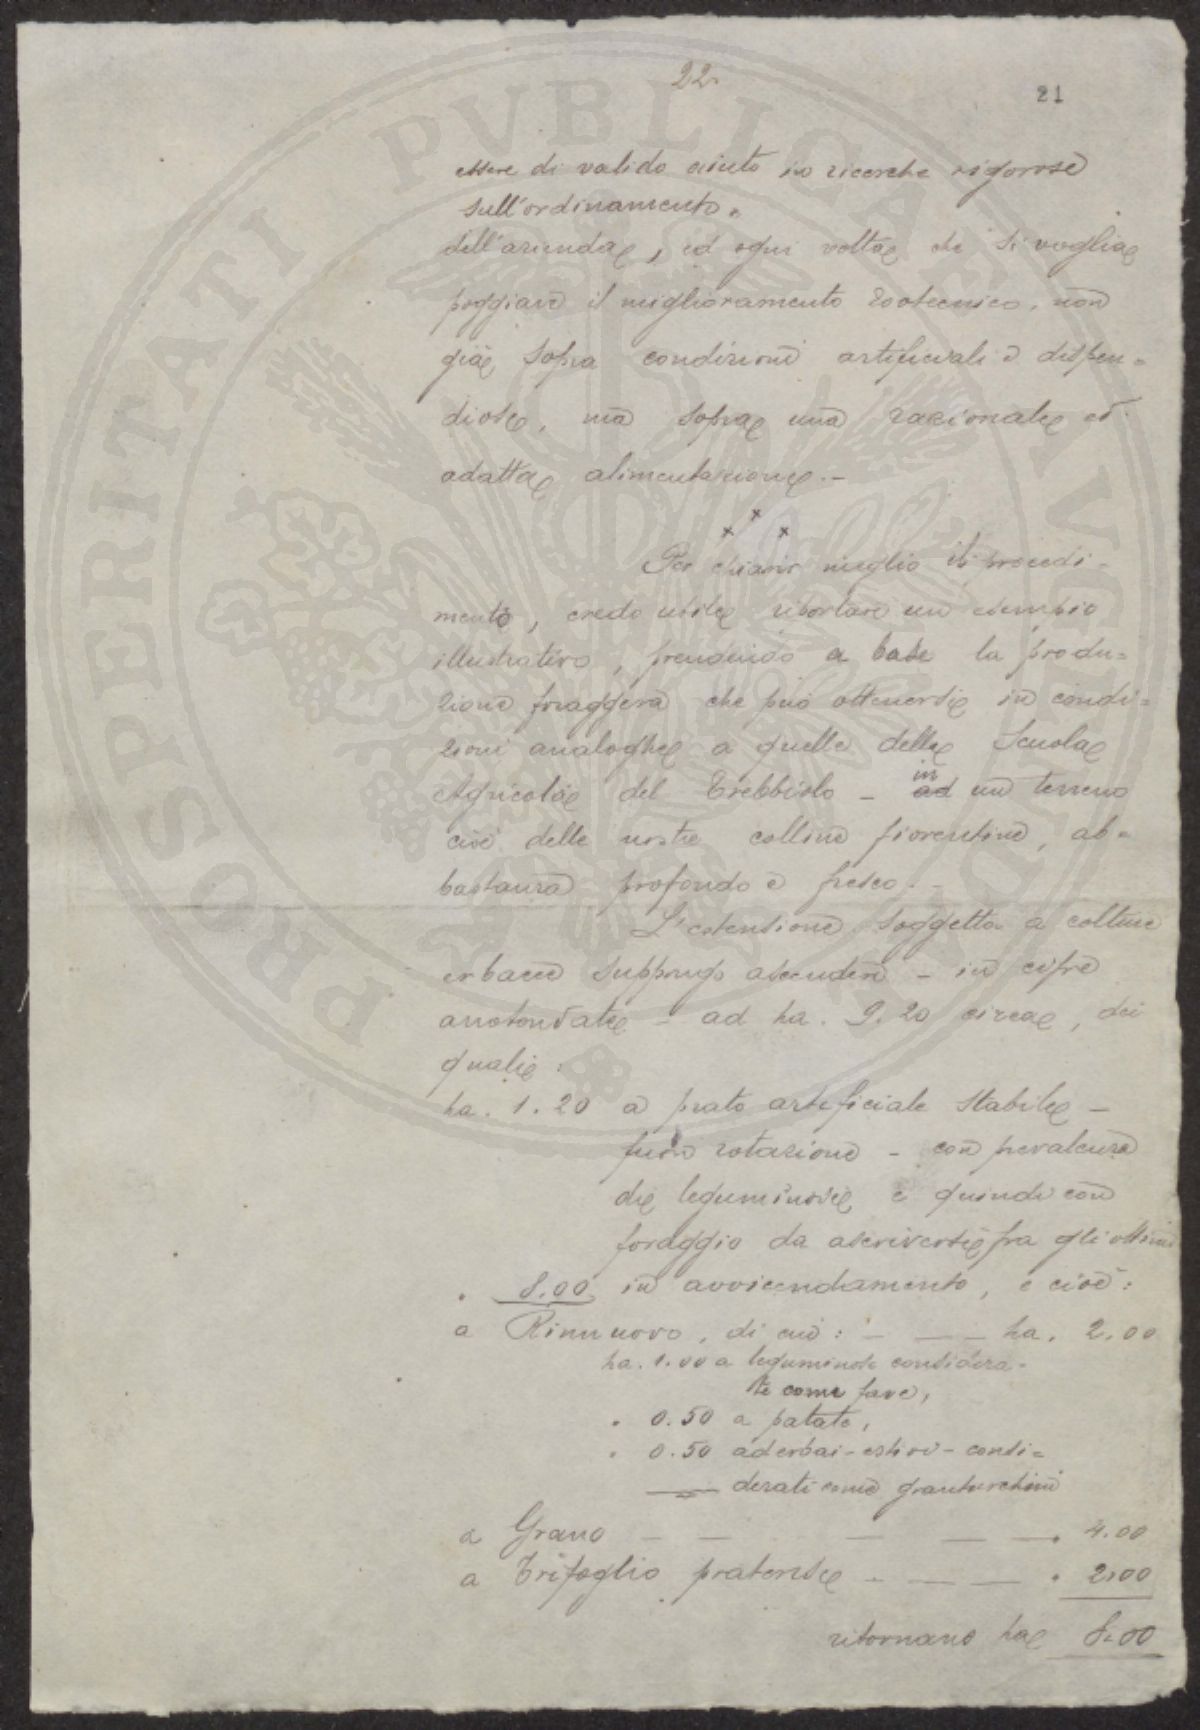 22.
21
essere di valido aiuto in ricerche rigorose
sull'ordinamento.
dell'azienda, ed ogni volta che si voglia
poggiare il miglioramento zootecnico, non
già sopra condizioni artificiali e dispen=
diose, ma sopra una razionale ed
adatta alimentazione.-
x x x
Per chiarir meglio il procedi-
mento, credo utile riportare un esempio
illustrativo, prendendo a base la produ=
zione foraggera che può ottenersi in condi=
zioni analoghe a quelle della Scuola
Agricola del Trebbiolo - ad un terreno
in
cioè delle nostre colline fiorentine, ab=
bastanza profondo e fresco.-
L'estensione soggetta a colture
erbacee suppongo ascendere - in cifre
arrotondate - ad ha. 9.20 circa, dei
quali:
ha. 1.20 a prato artificiale stabile -
fuori rotazione - con prevalenza
di leguminose e quindi con
foraggio da ascriversi fra gli ottimi
" 8.00 in avvicendamento, e cioè:
a Rinnuovo, di cui: - - - ha. 2.00
ha. 1.00 a leguminose considera-
te come fave,
" 0.50 a patate,
" 0.50 ad erbai - estivi - consi=
derati come granturchini
a Grano - - - - - " 4.00
a Trifoglio pratense - - - - " 2.00
ritornano ha 8.00
PROSPERITATI PVBLICAE AVGENDAE